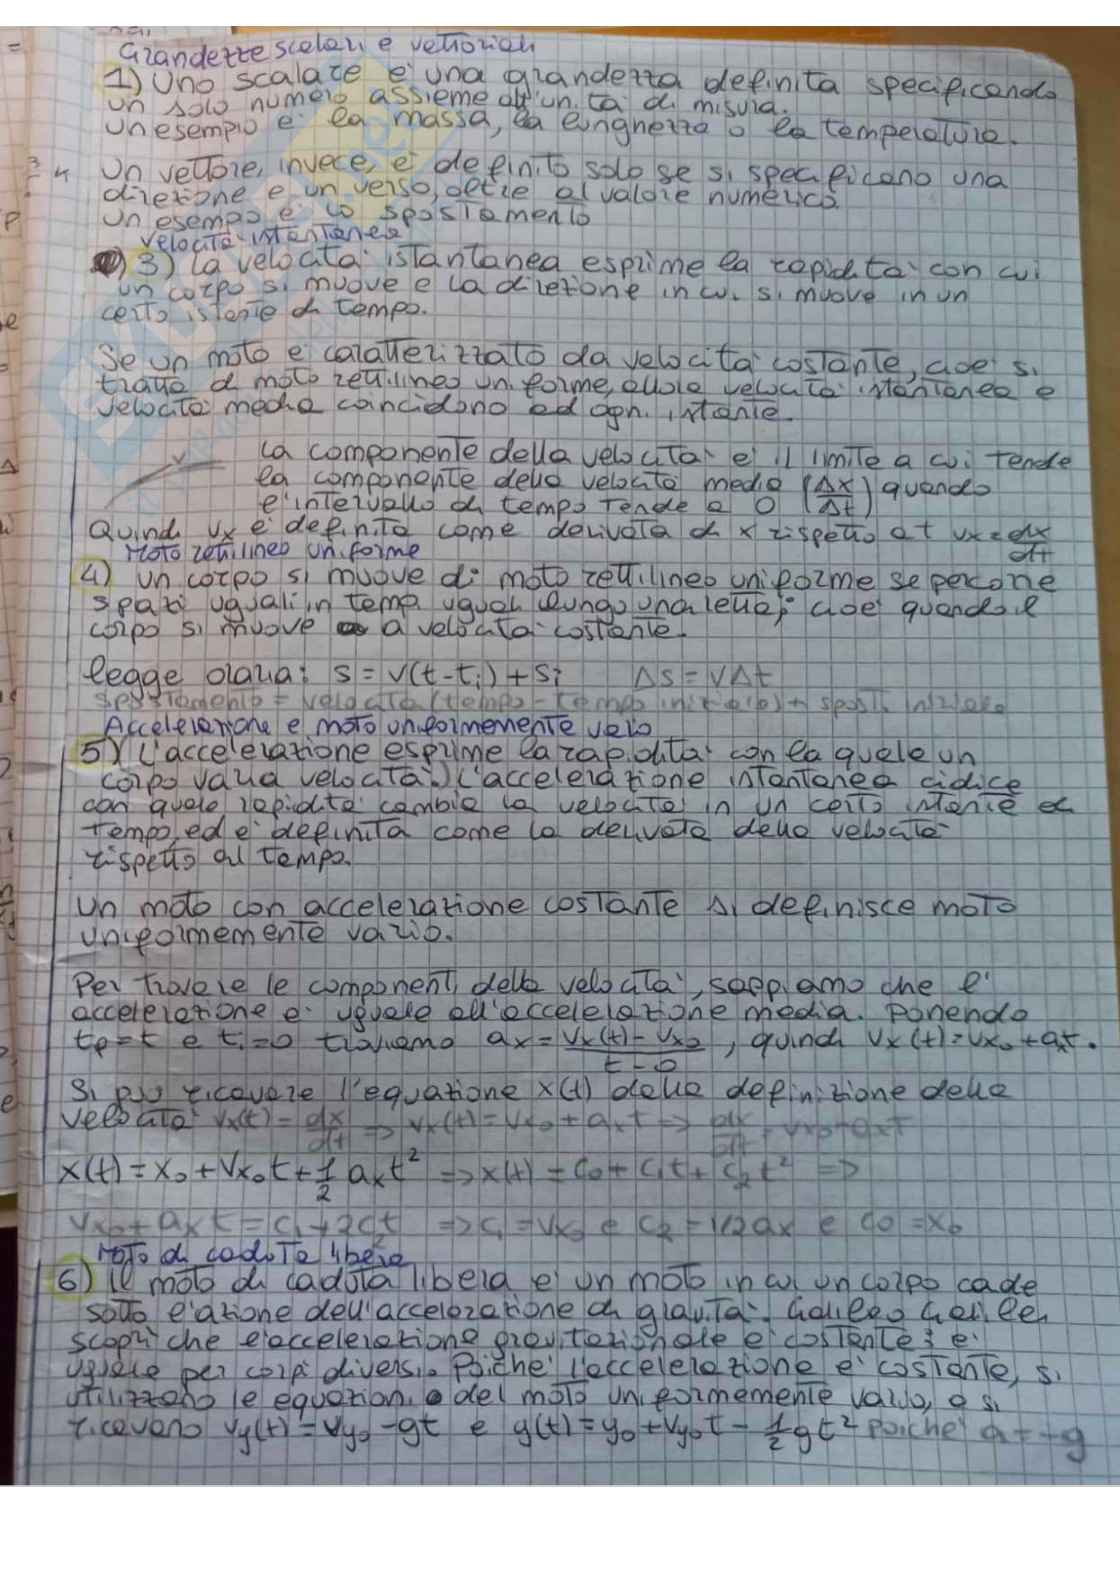 Grandezze scalari e vettoriali
1) Uno scalare e' una grandezza definita specificando
un solo numero assieme all'unità di misura.
un esempio e' la massa, la lunghezza o la temperatura.
Un vettore, invece, e' definito solo se si specificano una
direzione e un verso, oltre al valore numerico
Un esempio e' lo spostamento
Velocità istantanea
3) La velocità istantanea esprime la rapidità con cui
un corpo si muove e la direzione in cui si muove in un
certo istante di tempo.
Se un moto e' caratterizzato da velocità costante, cioe' si
tratta di moto rettilineo uniforme, allora velocità istantanea e
velocità media coincidono ad ogni istante.
La componente della velocità e' il limite a cui tende
la componente della velocità media (Δx/Δt) quando
l'intervallo di tempo tende a 0
Quindi vx e' definita come derivata di x rispetto a t vx = dx/dt
Moto rettilineo uniforme
4) un corpo si muove di moto rettilineo uniforme se percorre
spazi uguali in tempi uguali lungo una retta, cioe' quando il
corpo si muove a velocità costante.
legge oraria: s = v(t-ti) + si Δs = vΔt
spostamento = velocità (tempo - tempo iniziale) + spost. iniziale
Accelerazione e moto uniformemente vario
5) L'accelerazione esprime la rapidità con la quale un
corpo varia velocità. L'accelerazione istantanea ci dice
con quale rapidità cambia la velocità in un certo istante di
tempo, ed e' definita come la derivata della velocità
rispetto al tempo.
Un moto con accelerazione costante si definisce moto
uniformemente vario.
Per trovare le componenti della velocità, sappiamo che l'
accelerazione e' uguale all'accelerazione media. Ponendo
tf=t e ti=0 troviamo ax = vx(t) - vx0 / t - 0, quindi vx(t) = vx0 + axt.
Si puo' ricavare l'equazione x(t) dalla definizione della
velocità vx(t) = dx/dt => vx(t) = vx0 + axt => dx/dt = vx0 + axt
x(t) = x0 + vx0t + 1/2 axt² => x(t) = c0 + c1t + c2t² =>
vx0 + axt = c1 + 2c2t => c1 = vx0 e c2 = 1/2ax e c0 = x0
Moto di caduta libera
6) Il moto di caduta libera e' un moto in cui un corpo cade
sotto l'azione dell'accelerazione di gravità. Galileo Galilei
scopri' che l'accelerazione gravitazionale e' costante e
uguale per corpi diversi. Poiche' l'accelerazione e' costante, si
utilizzano le equazioni del moto uniformemente vario, e si
ricavano vy(t) = vy0 - gt e y(t) = y0 + vy0t - 1/2 gt² poiche' a = -g